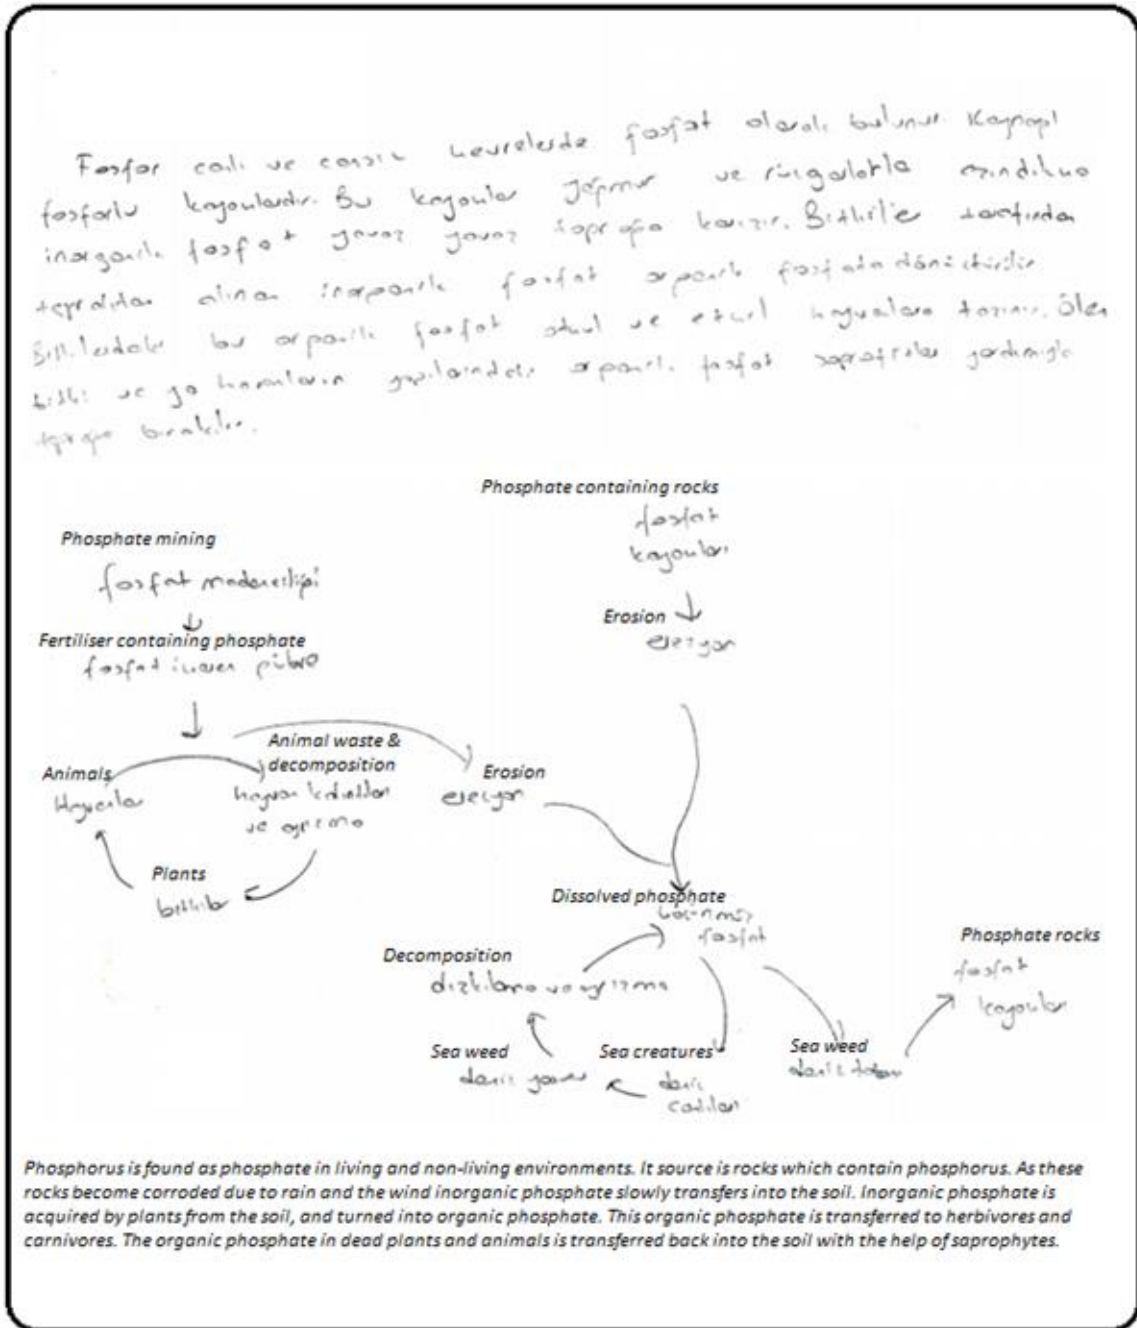 Fosfor canlı ve cansız çevrelerde fosfat olarak bulunur Kaynağı
fosforlu kayalardır. Bu kayalar yağmur ve rüzgarlarla aşındıkça
inorganik fosfat yavaş yavaş toprağa karışır. Bitkiler tarafından
topraktan alınan inorganik fosfat organik fosfata dönüştürülür
Bitkilerdeki bu organik fosfat otçul ve etçil hayvanlara taşınır. Ölen
bitki ve ya organik fosfat saprofitler yardımıyla
toprağa bırakılır.
Phosphate containing rocks
fosfat
kayaları
Phosphate mining
fosfat madenciliği
Erosion
erozyon
Fertiliser containing phosphate
fosfat içeren gübre
Animal waste &
decomposition
hayvan
ve
Animals
Hayvanlar
Erosion
erozyon
Plants
bitkiler
Dissolved phosphate
fosfat
Decomposition
Phosphate rocks
fosfat
kayaları
Sea weed
deniz
Sea creatures
deniz
canlıları
Sea weed
deniz tabanı
Phosphorus is found as phosphate in living and non-living environments. It source is rocks which contain phosphorus. As these
rocks become corroded due to rain and the wind inorganic phosphate slowly transfers into the soil. Inorganic phosphate is
acquired by plants from the soil, and turned into organic phosphate. This organic phosphate is transferred to herbivores and
carnivores. The organic phosphate in dead plants and animals is transferred back into the soil with the help of saprophytes.